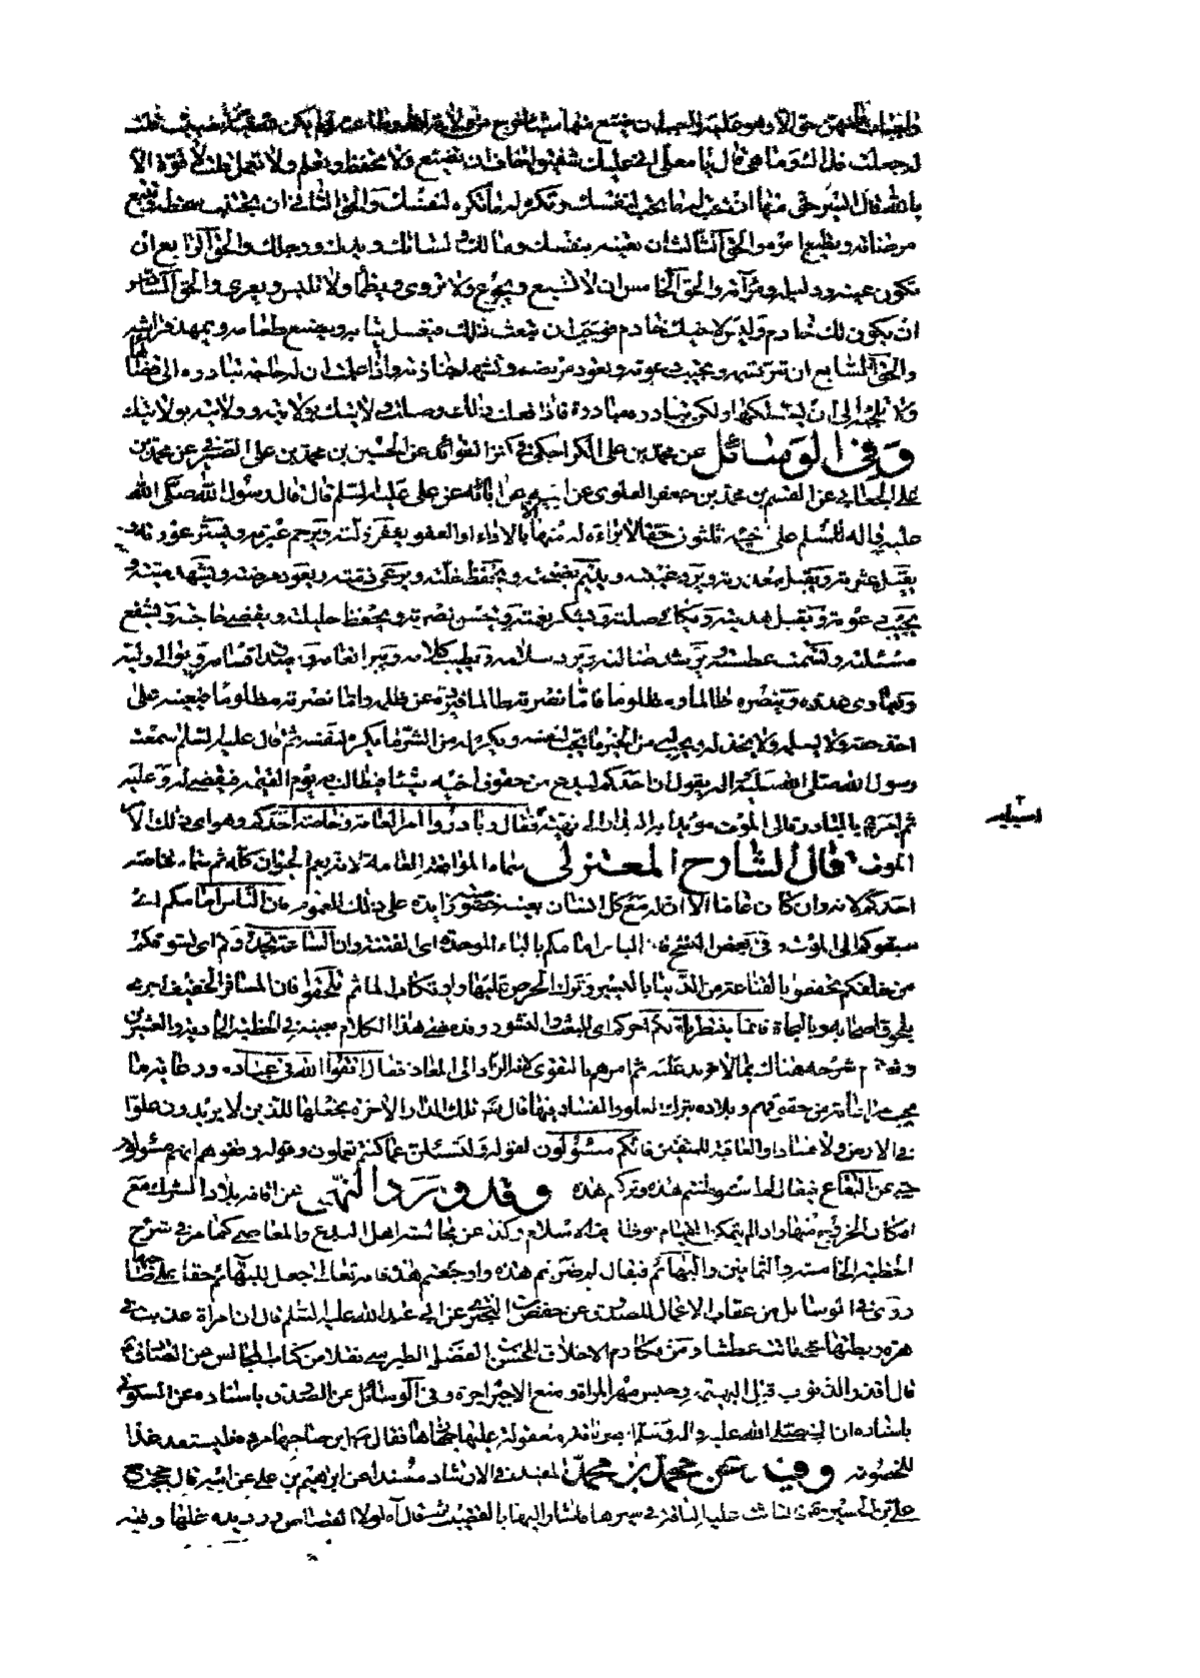 لم جعلت فداك وما هي قال يا معلى اني عليك شفيق اخاف ان تضيع ولا تحفظ وتعلم ولا تعمل قلت لا قوة الا
بالله قال ايسر حق منها ان تحب له ما تحب لنفسك وتكره له ما تكره لنفسك والحق الثاني ان تجتنب سخطه وتتبع
مرضاته وتطيع امره والحق الثالث ان تعينه بنفسك ومالك ولسانك ويدك ورجلك والحق الرابع ان
تكون عينه ودليله ومرآته والحق الخامس ان لا تشبع ويجوع ولا تروى ويظمأ ولا تلبس ويعرى والحق السادس
ان يكون لك خادم وليس لاخيك خادم فوجب ان تبعث خادمك فيغسل ثيابه ويصنع طعامه ويمهد فراشه
والحق السابع ان تبر قسمه وتجيب دعوته وتعود مريضه وتشهد جنازته واذا علمت ان له حاجة تبادره الى قضائها
ولا تلجئه الى ان يسئلكها ولكن تبادره مبادرة فاذا فعلت ذلك وصلت ولايتك بولايته وولايته بولايتك
وفي الوسائل عن محمد بن علي الكراجكي في كنز الفوائد عن الحسين بن محمد بن علي الصيرفي عن محمد بن
علي الجعابي عن القسم بن محمد بن جعفر العلوي عن ابيه عن آبائه عن علي عليه السلم قال قال رسول الله صلى الله
عليه وآله للمسلم على اخيه ثلثون حقا لا براءة له منها الا بالاداء او العفو يغفر زلته ويرحم عبرته ويستر عورته
يقيل عثرته ويقبل معذرته ويرد غيبته ويديم نصيحته ويحفظ خلته ويرعى ذمته ويعود مرضته ويشهد ميتته
يجيب دعوته ويقبل هديته ويكافي صلته ويشكر نعمته ويحسن نصرته ويحفظ حليلته ويقضى حاجته ويشفع
مسئلته ويسمت عطسته ويرشد ضالته ويرد سلامه ويطيب كلامه ويبر انعامه ويصدق اقسامه ويوالي وليه
ولا يعاديه وينصره ظالما ومظلوما فاما نصرته ظالما فيرده عن ظلمه واما نصرته مظلوما فيعينه على
اخذ حقه ولا يسلمه ولا يخذله ويحب له من الخير ما يحب لنفسه ويكره له من الشر ما يكره لنفسه ثم قال عليه السلم سمعت
رسول الله صلى الله عليه وآله يقول ان احدكم ليدع من حقوق اخيه شيئا فيطالبه به يوم القيمة فيقضى له وعليه
ثم امرهم بالمبادرة الى الموت فقال وبادروا امر العامة وخاصة احدكم وهو اى ذلك الامر
الموت قال الشارح المعتزلي سماه الواقعة العامة لانه يعم الحيوان كله ثم سماه خاصة
احدكم لانه وان كان عاما الا ان له مع كل انسان بعينه خصوصية زايدة على ذلك العموم فان الناس امامكم اى
سبقوكم الى الموت وفي بعض النسخ فان الباس امامكم بالباء الموحدة اى الفتنة وان الساعة تحدوكم اى تسوقكم
من خلفكم تخففوا بالقناعة من الدنيا باليسير وترك الحرص عليها وارتكاب المآثم تلحقوا فان المسافر الخفيف احرى
بلحوق اصحابه وبالنجاة فانما ينتظر باولكم آخركم اى للبعث والنشور وقد مضى هذا الكلام بعينه في الخطبة الحادية والعشرين
وتقدم شرحه هناك بما لا مزيد عليه ثم امرهم بالتقوى لكونه الزاد الى المعاد فقال اتقوا الله في عباده
وبلاده بترك العلو والفساد فيها قال تعالى تلك الدار الآخرة نجعلها للذين لا يريدون علوا
في الارض ولا فسادا والعاقبة للمتقين فانكم مسئولون لقوله ولتسئلن عما كنتم تعملون وقوله وقفوهم انهم مسئولون
حتى عن البقاع فيقال لم استوطنتم هذه وتركتم هذه وقد ورد النهي عن اقامة بلاد الشرك مع
امكان الخروج منها وكذا عن مجالسة اهل البدع والمعاصي كما مر في شرح
الخطبة الخامسة والثمانين والبهائم فيقال لم ضربتم هذه واوجعتم هذه فانه تعالى جعل للبهائم حقا على صاحبها
روى في الوسائل من عقاب الاعمال للصدوق عن حفص بن البختري عن ابي عبد الله عليه السلم قال ان امراة عذبت في
هرة ربطتها حتى ماتت عطشا ومن مكارم الاخلاق للحسن بن الفضل الطبرسي نقلا من كتاب المجالس عن الصادق ع
قال اقذر الذنوب قتل البهيمة وحبس مهر المراة ومنع الاجير اجره وفي الوسائل عن الصدوق باسناده عن السكوني
باسناده ان النبي صلى الله عليه وآله وسلم ابصر ناقة معقولة عليها جهازها فقال اين صاحبها مروه فليستعد غدا
للخصومة وفيه عن محمد بن محمد المفيد في الارشاد مسندا عن ابراهيم بن علي عن ابيه قال حججت مع
علي بن الحسين فالتاثت عليه الناقة في سيرها فاشار اليها بالقضيب ثم قال آه لولا القصاص ورد يده عنها وفيه